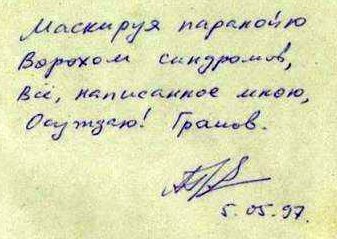 Маскируя паранойю
Ворохом синдромов,
Всё, написанное мною,
Осуждаю! Громов.
5.05.97.